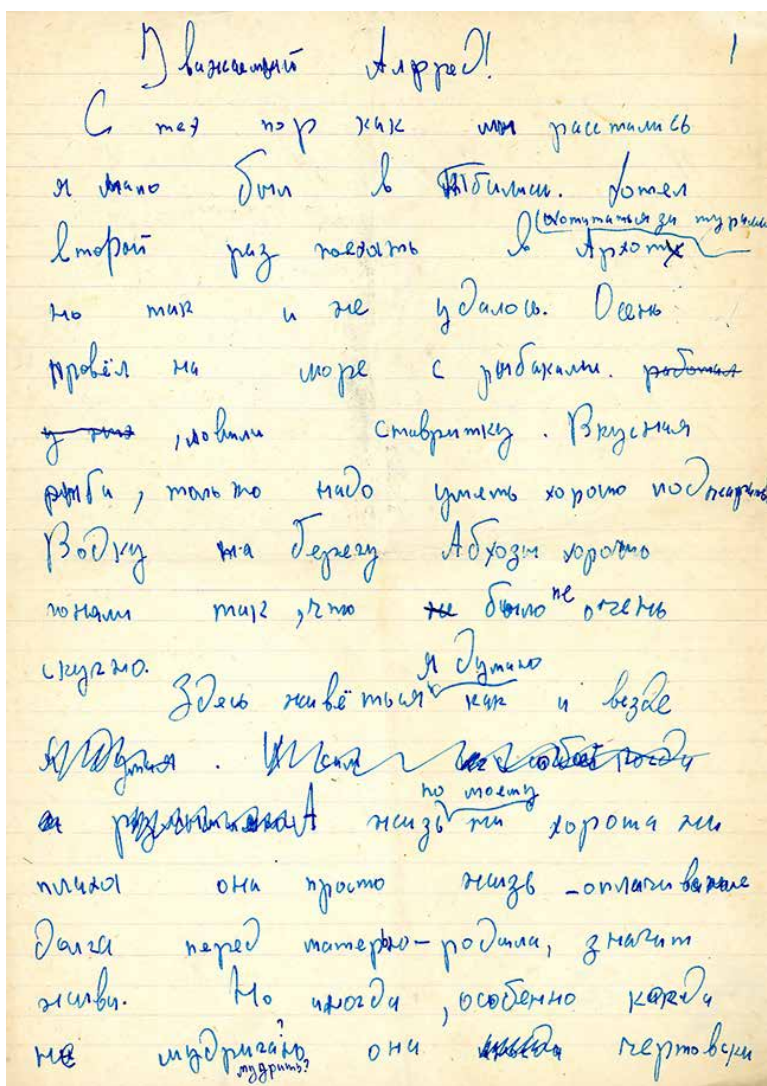 1
Уважаемый Алфред!
С тех пор как мы расстались
я мало был в Тбилиси. Хотел
(охотиться за турами
второй раз поехать в Архоты
но так и не удалось. Осень
провёл на море с рыбаками. работал
у них, ловили ставритку. Вкусная
рыба, только надо уметь хорошо поджарить
Водку на берегу Абхазы хорошо
гонали так, что не было не очень
скучно.
я думаю
Здесь живёться как и везде
я думая.
по моему
А жизь ни хороша ни
плиха она просто жизь - оплачивание
долга перед матерью - родила, значит
живи. Но иногда, особенно когда
не мудригаць она чертовски
? мудрить?